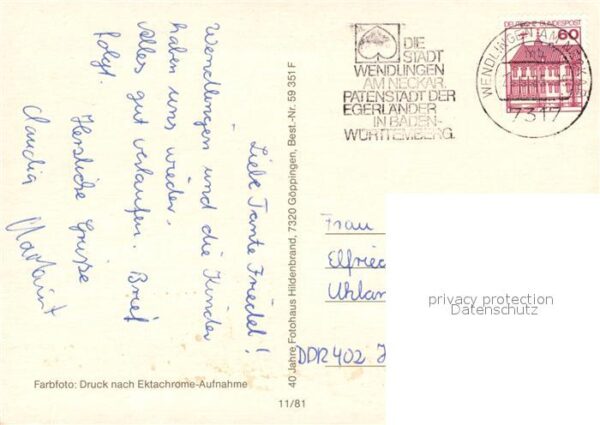 Liebe Tante Friedel!
Wendlingen und die Kinder
haben uns wieder.
Alles gut verlaufen. Brief
folgt.
Herzliche Grüße
Claudia
40 Jahre Fotohaus Hildenbrand, 7320 Göppingen, Best.-Nr. 59 351 F
DIE
STADT
WENDLINGEN
AM NECKAR,
PATENSTADT DER
EGERLÄNDER
IN BADEN-
WÜRTTEMBERG.
DEUTSCHE BUNDESPOST
60
WENDLINGEN AM NECKAR
7317
Frau
Elfrie
Uhlan
DDR 402
privacy protection
Datenschutz
Farbfoto: Druck nach Ektachrome-Aufnahme
11/81